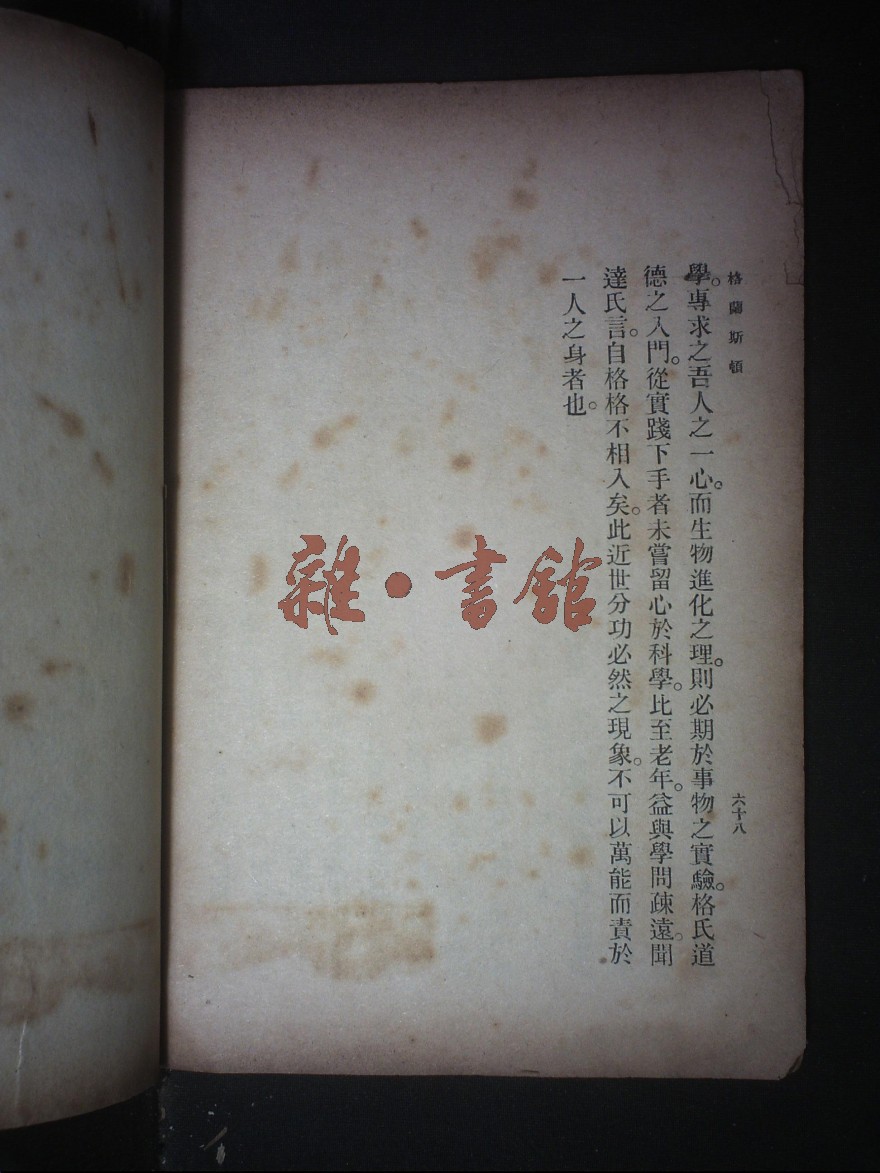 格蘭斯頓
六十八
學。專求之吾人之一心。而生物進化之理。則必期於事物之實驗。格氏道
德之入門。從實踐下手者未嘗留心於科學。比至老年。益與學問疎遠。聞
達氏言。自格格不相入矣。此近世分功必然之現象。不可以萬能而責於
一人之身者也。
雜·書館